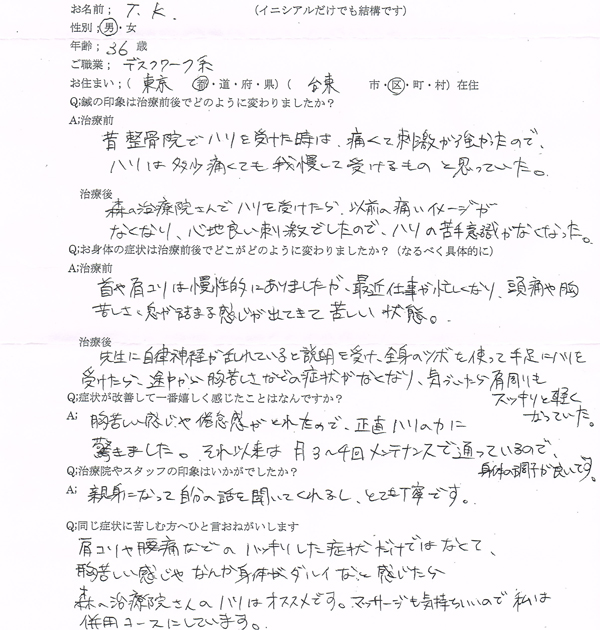 お名前； T. K. （イニシアルだけでも結構です）
性別；男・女
年齢；36歳
ご職業；デスクワーク系
お住まい；（東京 都・道・府・県）（台東 市・区・町・村）在住
Q;鍼の印象は治療前後でどのように変わりましたか？
A;治療前
昔整骨院でハリを受けた時は、痛くて刺激が強かったので、
ハリは多少痛くても我慢して受けるものと思っていた。
治療後
森の治療院さんでハリを受けたら、以前の痛いイメージが
なくなり、心地良い刺激でしたので、ハリの苦手意識がなくなった。
Q;お身体の症状は治療前後でどこがどのように変わりましたか？（なるべく具体的に）
A;治療前
首や肩コリは慢性的にありましたが、最近仕事が忙しくなり、頭痛や胸
苦しさ、息が詰まる感じが出てきて苦しい状態。
治療後
先生に自律神経が乱れていると説明を受け、全身のツボを使って手足にハリを
受けたら、途中から胸苦しさなどの症状がなくなり、気づいたら肩周りも
スッキリと軽く
なっていた。
Q;症状が改善して一番嬉しく感じたことはなんですか？
A; 胸苦しい感じや倦怠感がとれたので、正直ハリの力に
驚きました。それ以来は月3〜4回メンテナンスで通っているので、
身体の調子が良いです。
Q;治療院やスタッフの印象はいかがでしたか？
A; 親身になって自分の話を聞いてくれるし、とても丁寧です。
Q;同じ症状に苦しむ方へひと言おねがいします
肩コリや腰痛などのハッキリした症状だけではなくて、
胸苦しい感じやなんか身体がダルイなと感じたら
森の治療院さんのハリはオススメです。マッサージも気持ちいいので私は
併用コースにしています。